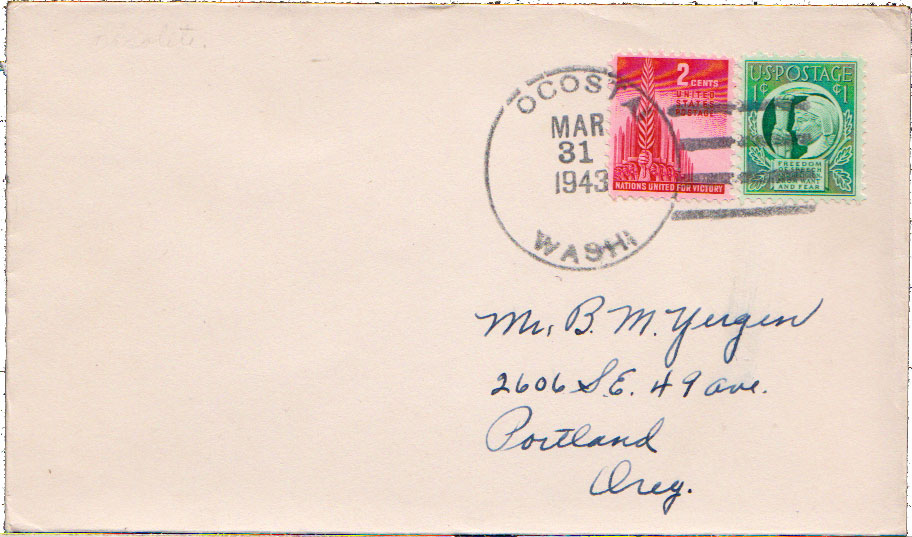 OCOSTA
MAR
31
1943
WASH
2 CENTS
UNITED
STATES
POSTAGE
NATIONS UNITED FOR VICTORY
U·S·POSTAGE
1¢ ¢1
FREEDOM
AND FEAR
Mr. B. M. Yergen
2606 S.E. 49 ave.
Portland
Oreg.